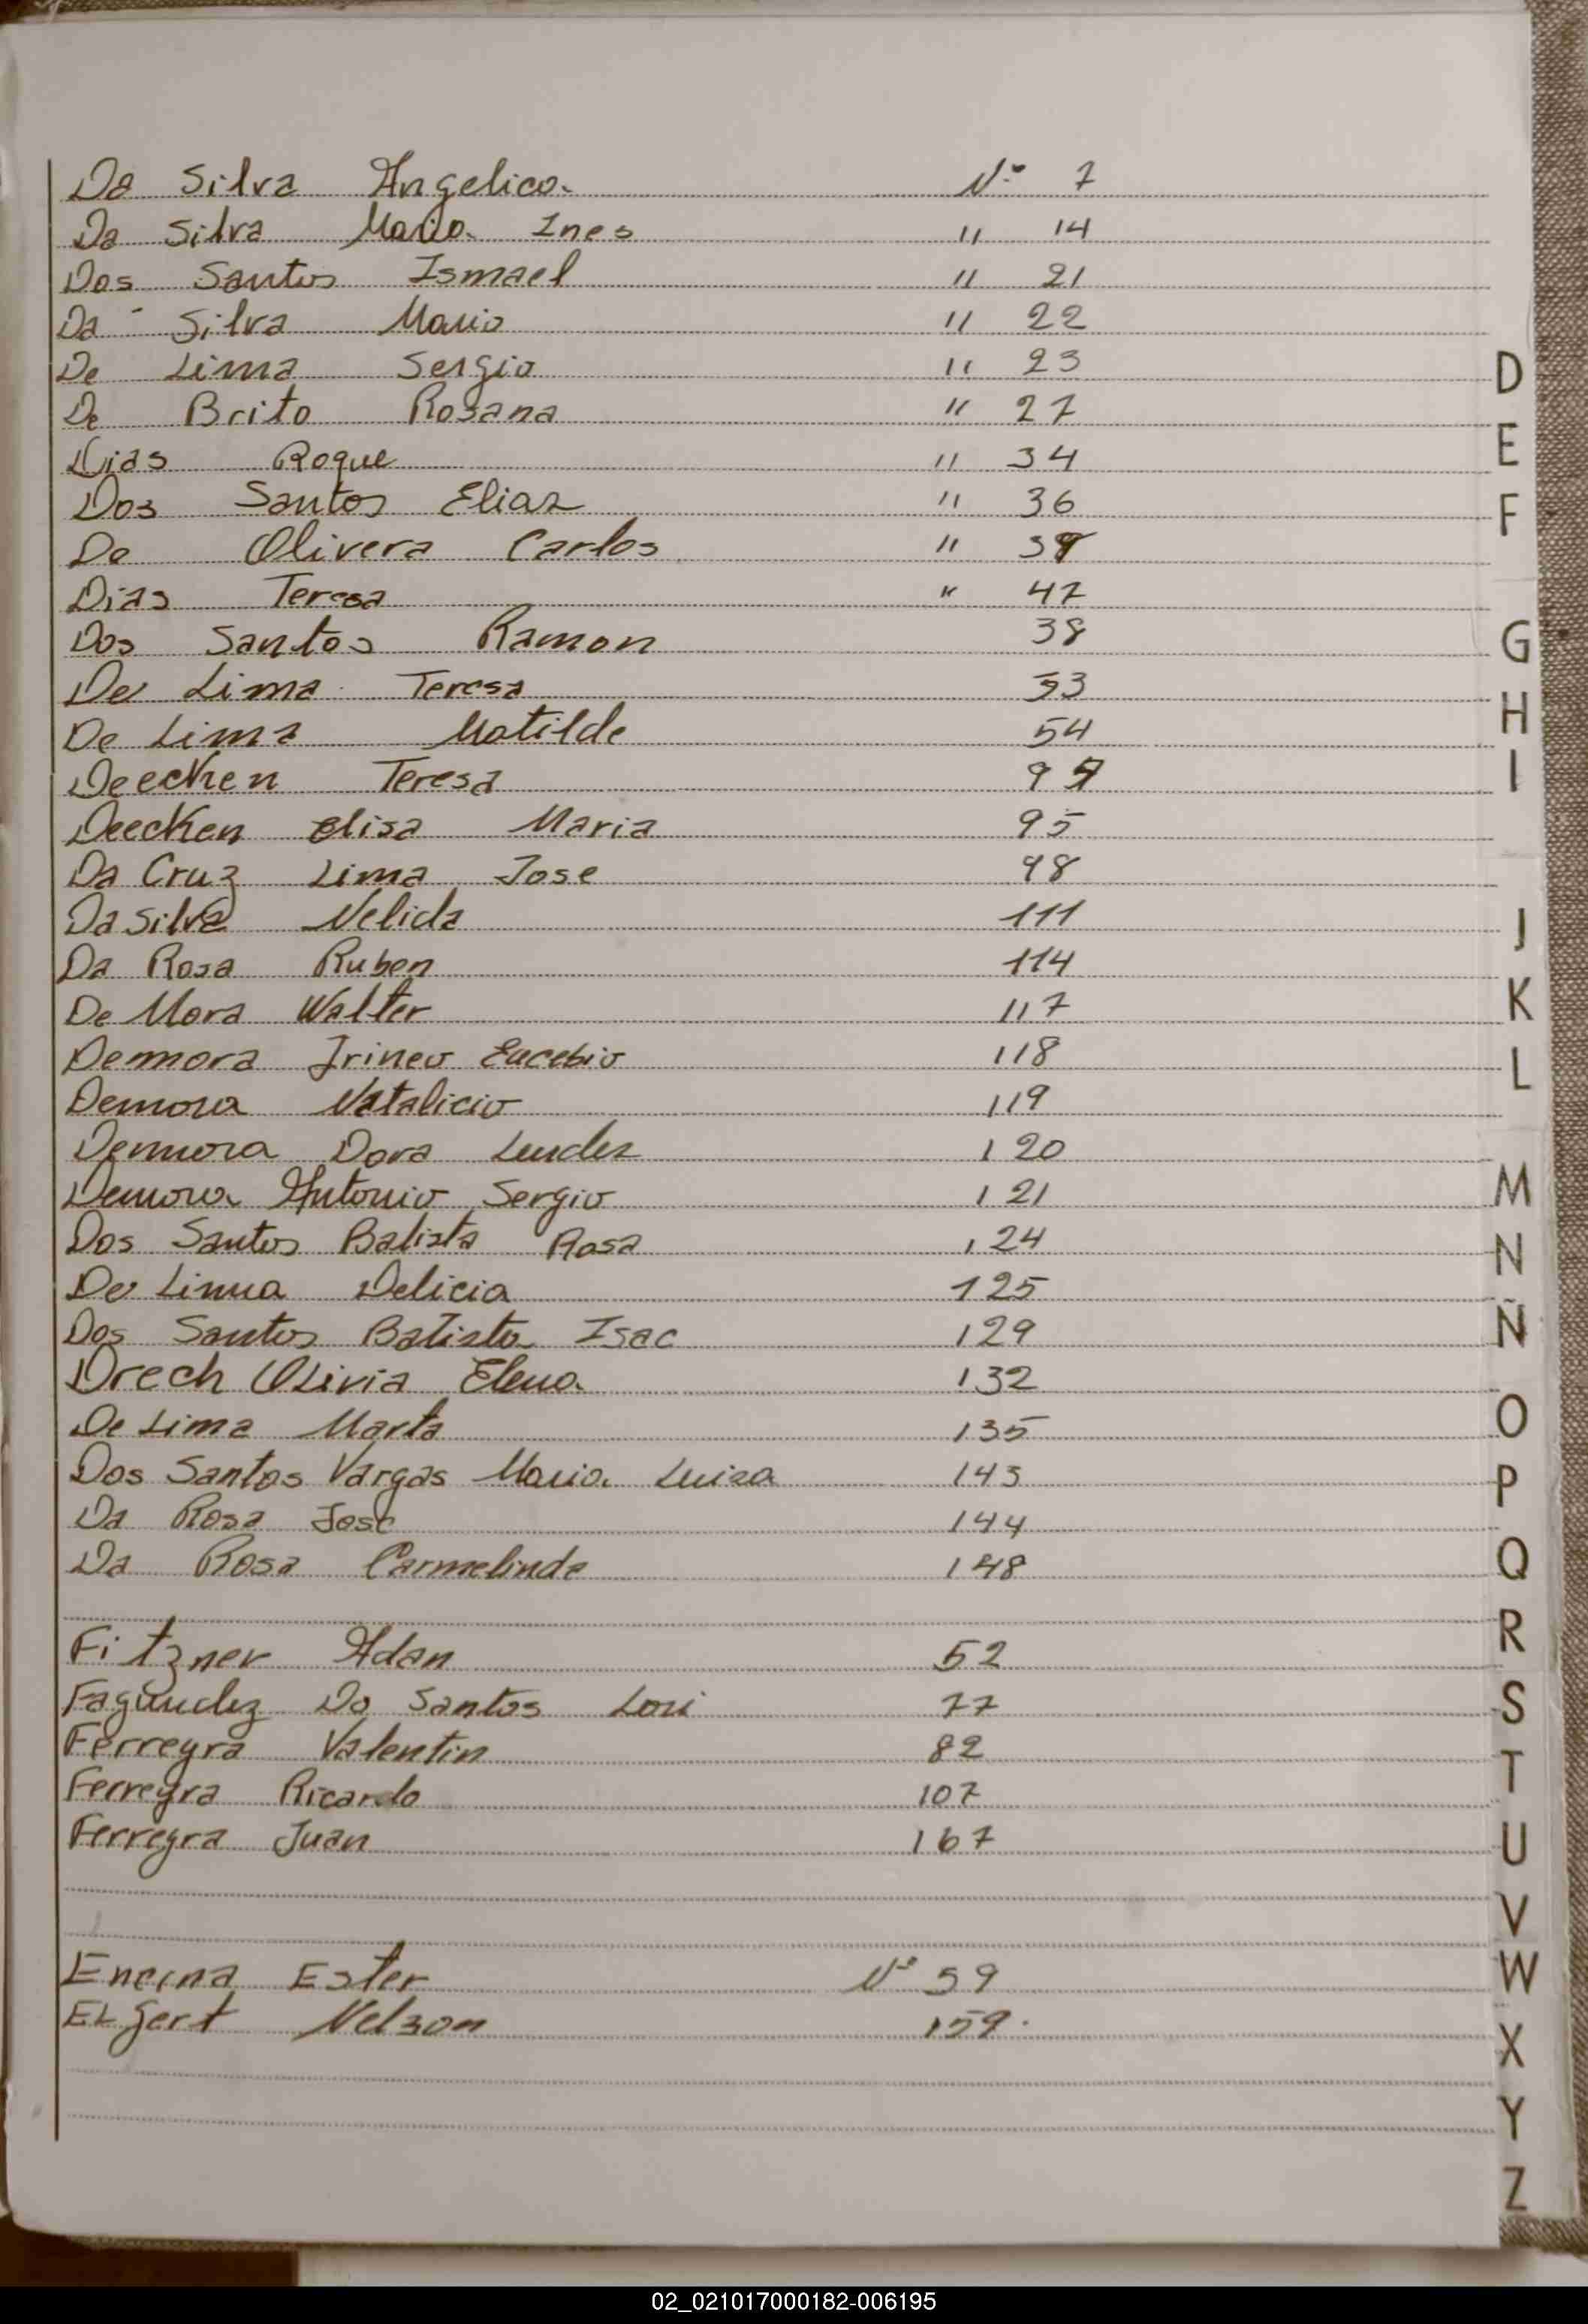 Da Silva Angelica Nº 7
Da Silva Maria Ines " 14
Dos Santos Ismael " 21
Da Silva Mario " 22
De Lima Sergio " 23
De Brito Rosana " 27
Dias Roque " 34
Dos Santos Elias " 36
De Olivera Carlos "
Dias Teresa " 47
Dos Santos Ramon 38
De Lima Teresa 53
De Lima Matilde 54
Deecken Teresa
Deecken Elisa Maria 95
Da Cruz Lima Jose 98
Da Silva Nelida 111
Da Rosa Ruben 114
De Mora Walter 117
Demora Irineo Eucebio 118
Demora Natalicio 119
Demora Dora 120
Demora Antonio Sergio 121
Dos Santos Batista Rosa 124
De Lima Delicia 125
Dos Santos Batista Isac 129
Drech Olivia Elena 132
De Lima Marta 135
Dos Santos Vargas Maria Luisa 143
Da Rosa Jose 144
Da Rosa Carmelinda 148
Fitzner Adan 52
Fagundez Do Santos Lori 77
Ferreyra Valentin 82
Ferreyra Ricardo 107
Ferreyra Juan 167
Encina Ester Nº 59
Elgert Nelson 159.
D
E
F
G
H
I
J
K
L
M
N
Ñ
O
P
Q
R
S
T
U
V
W
X
Y
Z
02_021017000182-006195